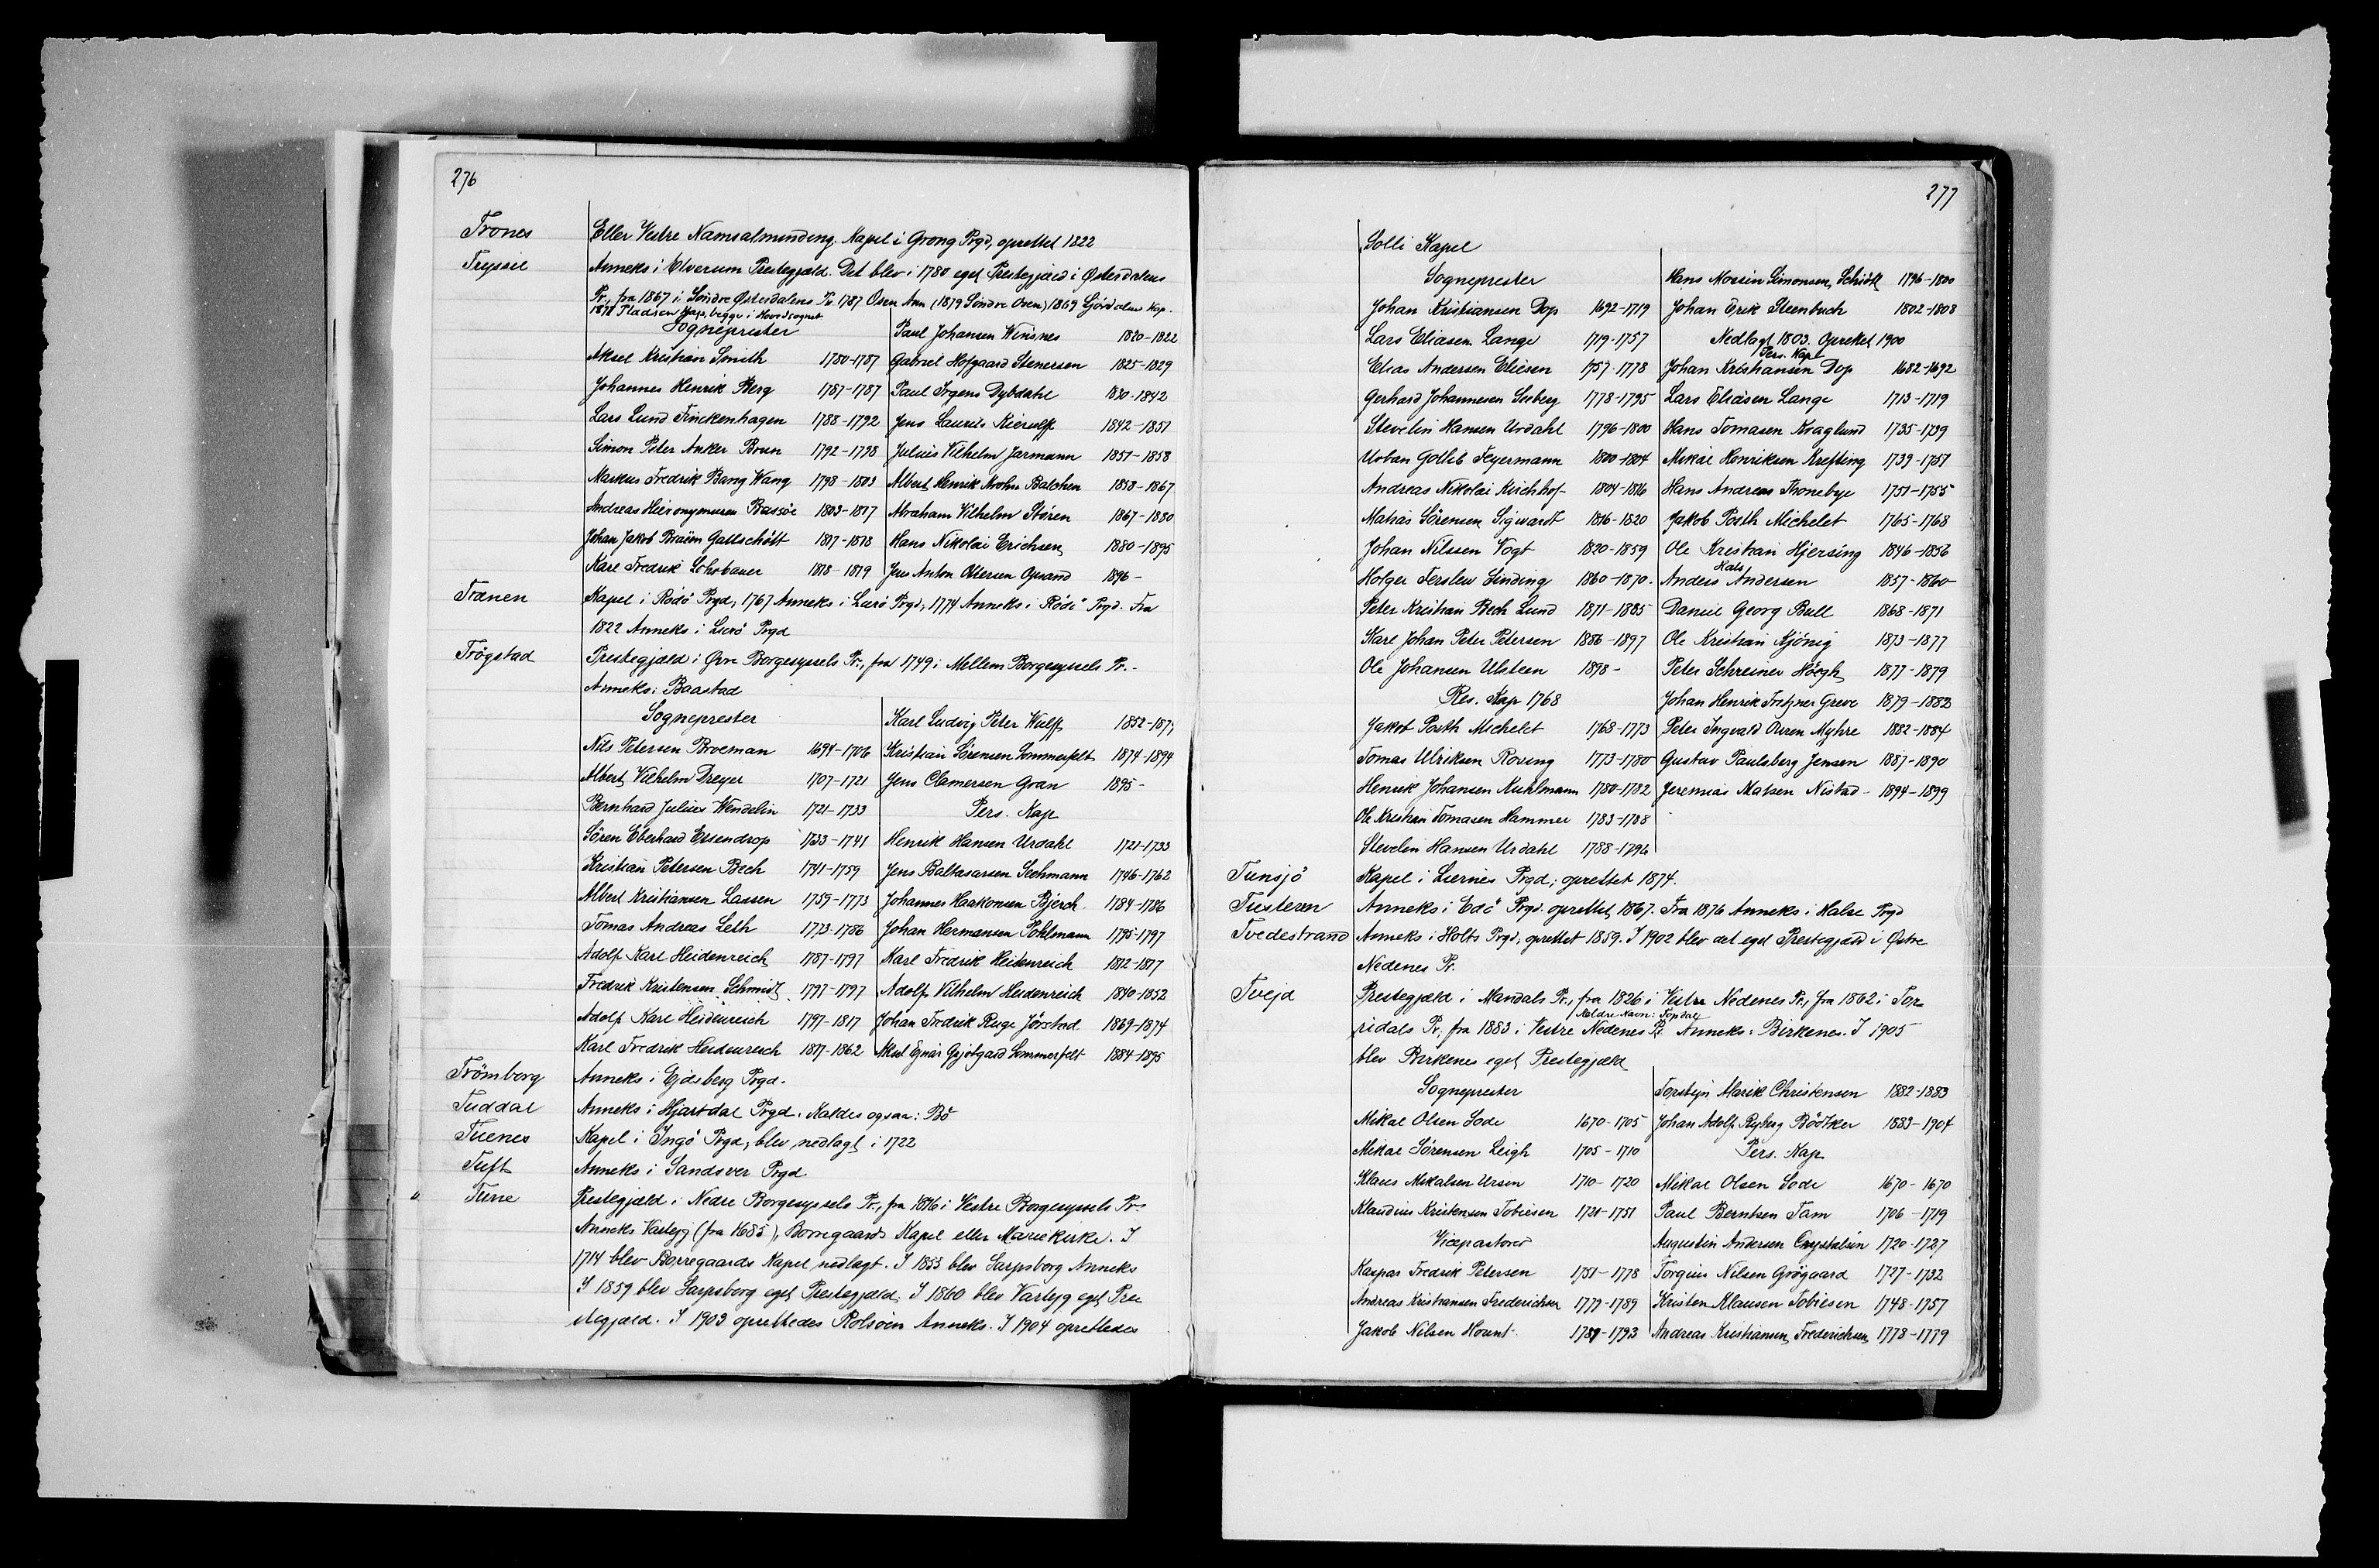 276
Trones Eller Vestre Namsalmending. Kapel i Grong Prgd, oprettet 1822
Tryssil Anneks i Elverum Prestegjæld. Det blev i 1780 eget Prestegjæld i Østerdalens
Pr., fra 1867 i Søndre Østerdalens Pr. 1787 Osen Ann (1879 Søndre Osen) 1869 Ljørdalen Kap.
1878 Pladsen Kap, begge i Hovedsognet
Sogneprester
Aksel Kristian Smith 1780-1787
Johannes Henrik Berg 1787-1787
Lars Lund Finckenhagen 1788-1792
Simon Peter Anker Brun 1792-1798
Markus Fredrik Bang Wang 1798-1803
Andreas Hieronymusen Bassøe 1803-1817
Johan Jakob Braüm Gattschött 1817-1818
Karl Fredrik Lohrbauer 1818-1819
Paul Johansen Winsnes 1820-1822
Gabriel Hofgaard Stenersen 1825-1829
Paul Irgens Dybdahl 1830-1842
Jens Laurits Kierulff 1842-1851
Julius Vilhelm Jarmann 1851-1858
Albert Henrik Krohn Balchen 1858-1867
Abraham Vilhelm Støren 1867-1880
Hans Nikolai Erichsen 1880-1895
Jens Anton Ottersen Opsand 1896-
Trænen Kapel i Rødø Prgd, 1767 Anneks i Lurö Prgd, 1774 Anneks i Rödö Prgd. Fra
1822 Anneks i Lurö Prgd
Trögstad Prestegjæld i Øvre Borgesyssels Pr., fra 1749 i Mellem Borgesyssels Pr.-
Anneks: Baastad
Sogneprester
Nils Petersen Broeman 1694-1706
Albert Vilhelm Dreyer 1707-1721
Bernhard Julius Wendelin 1721-1733
Sören Eberhard Essendrop 1733-1741
Kristian Petersen Bech 1741-1759
Albert Kristiansen Lassen 1759-1773
Tomas Andreas Leth 1773-1786
Adolf Karl Heidenreich 1787-1797
Fredrik Kristensen Schmidt 1797-1797
Adolf Karl Heidenreich 1797-1817
Karl Fredrik Heidenreich 1817-1862
Karl Ludvig Peter Wulff 1852-1874
Kristian Sörensen Sommerfelt 1874-1894
Jens Clamersen Gran 1895-
Pers. Kap
Henrik Hansen Urdahl 1721-1733
Jens Baltasarsen Seehmann 1746-1762
Johannes Haakonsen Bjerch 1784-1786
Johan Hermansen Pohlmann 1795-1797
Karl Fredrik Heidenreich 1812-1817
Adolf Vilhelm Heidenreich 1840-1852
Johan Fredrik Ruge Jörstad 1869-1874
Aksel Ejnar Gjølgaard Sommerfelt 1884-1895
Trömborg Anneks i Ejdsberg Prgd.
Tuddal Anneks i Hjartdal Prgd. Kaldes ogsaa: Bö
Tuenes Kapel i Ingö Prgd, blev nedlagt i 1722
Tuft Anneks i Sandsver Prgd
Tune Prestegjæld i Nedre Borgesyssels Pr., fra 1876 i Vestre Borgesyssels Pr.
Anneks Varteyg (fra 1685), Borregaards Kapel eller Mariekirke. I
1714 blev Borregaards Kapel nedlagt. I 1853 blev Sarpsborg Anneks
I 1859 blev Sarpsborg eget Prestegjæld. I 1860 blev Varteyg eget Pre
stegjæld. I 1903 oprettedes Rolsöen Anneks. I 1904 oprettedes
277
Solli Kapel
Sogneprester
Johan Kristiansen Dop 1692-1719
Lars Eliasen Lange 1719-1757
Elias Andersen Eliesen 1757-1778
Gerhard Johannesen Seeberg 1778-1795
Stevelin Hansen Urdahl 1796-1800
Urban Gotlib Feyermann 1800-1804
Andreas Nikolai Kirchhof 1804-1816
Matias Sörensen Sigvardt 1816-1820
Johan Nilssen Vogt 1820-1859
Holger Ferslew Sinding 1860-1870
Peter Kristian Bech Lund 1871-1885
Karl Johan Peter Petersen 1886-1897
Ole Johansen Ulsteen 1898-
Res. Kap 1768
Jakob Posth Michelet 1768-1773
Tomas Ulriksen Roving 1773-1780
Henrik Johansen Kuhlmann 1780-1782
Ole Kristian Tomasen Hammer 1783-1788
Stevelin Hansen Urdahl 1788-1796
Hans Mossin Simonsen Schiött 1796-1800
Johan Erik Steenbuch 1802-1808
Nedlagt 1803. Oprettet 1900
Pers. Kapl
Johan Kristiansen Dop 1682-1692
Lars Eliasen Lange 1713-1719
Hans Tomasen Kraglund 1735-1739
Mikal Henriksen Krefting 1739-1751
Hans Andreas Thonebye 1751-1755
Jakob Posth Michelet 1765-1768
Ole Kristian Hjersing 1846-1856
Anders Mals Andersen 1857-1860
Daniel Georg Bull 1868-1871
Ole Kristian Kjönig 1873-1877
Peter Schreiner Höegh 1877-1879
Johan Henrik Fritzner Greve 1879-1882
Peter Ingvald Ouren Myhre 1882-1884
Gustav Paulsberg Jensen 1887-1890
Jeremias Matsen Nistad 1894-1899
Tunsjö Kapel i Liernes Prgd; oprettet 1874.
Tusteren Anneks i Edö Prgd. oprettet 1867. Fra 1876 Anneks i Halse Prgd
Tvedestrand Anneks i Holts Prgd, oprettet 1859. I 1902 blev det eget Prestegjæld i Østre
Nedenes Pr.
Tvejd Prestegjæld i Mandals Pr., fra 1826 i Vestre Nedenes Pr., fra 1862 i Tor
Ældre Navn: Topdal
ridals Pr. fra 1883 i Vestre Nedenes Pr. Anneks: Birkenes. I 1905
blev Birkenes eget Prestegjæld
Sogneprester
Mikal Olsen Lode 1670-1705
Mikal Sörensen Leigh 1705-1710
Klaus Mikalsen Ursin 1710-1720
Klaudius Kristensen Tobiesen 1721-1751
Vicepastorer
Kaspar Fredrik Petersen 1751-1778
Andreas Kristiansen Frederichsen 1779-1789
Jakob Nilsen Hount 1789-1793
Torstejn Alarik Christensen 1882-1883
Johan Adolf Ryberg Bödtker 1883-1904
Pers. Kap
Mikal Olsen Lode 1670-1670
Paul Berntsen Tam 1706-1719
Augustin Andersen Crystalsin 1720-1727
Torgius Nilsen Grögaard 1727-1732
Kristen Klausen Tobiesen 1748-1757
Andreas Kristiansen Frederichsen 1778-1779